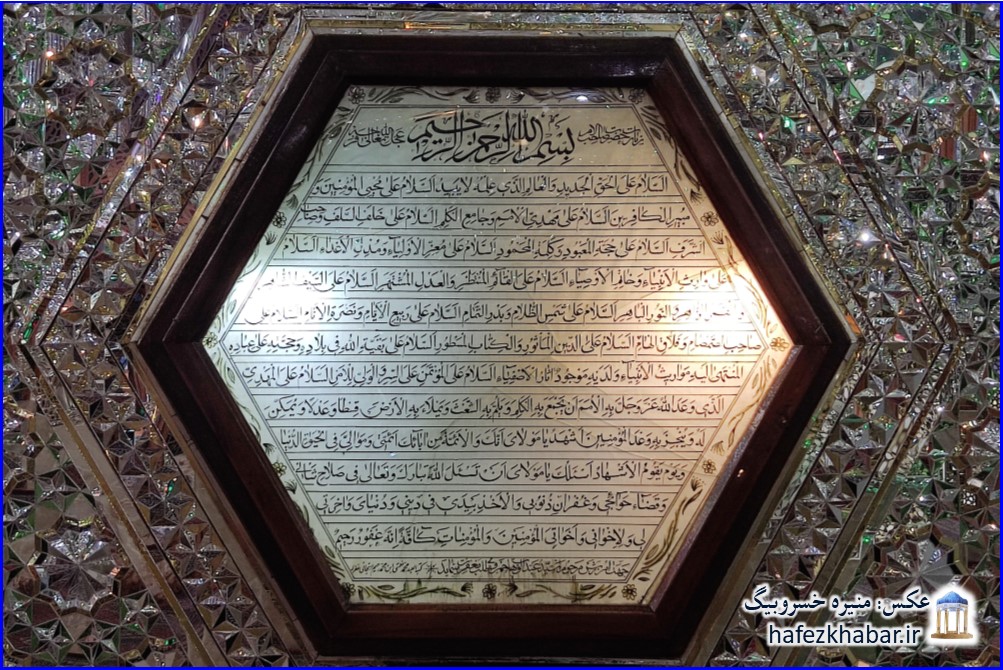 بِسْمِ اللهِ الرَّحْمنِ الرَّحیمِ
السَّلامُ عَلَی الْحَقِّ الْجَدیدِ وَالْعالِمِ الَّذی عِلْمُهُ لا یَبیدُ السَّلامُ عَلی مُحْیِی الْمُؤْمِنینَ وَ
مُبیرِ الْکافِرینَ السَّلامُ عَلی مَهْدِیِّ الْاُمَمِ وَجامِعِ الْکَلِمِ السَّلامُ عَلی خَلَفِ السَّلَفِ وَصاحِبِ
الشَّرَفِ السَّلامُ عَلی حُجَّةِ الْمَعْبُودِ وَکَلِمَةِ الْمَحْمُودِ السَّلامُ عَلی مُعِزِّ الْاَوْلِیاءِ وَمُذِلِّ الْاَعْداءِ السَّلامُ
عَلی وارِثِ الْاَنْبِیاءِ وَخاتَمِ الْاَوْصِیاءِ السَّلامُ عَلَی الْقائِمِ الْمُنْتَظَرِ وَالْعَدْلِ الْمُشْتَهَرِ السَّلامُ عَلَی السَّیْفِ
النُّورِ الْباهِرِ السَّلامُ عَلی شَمْسِ الظَّلامِ وَبَدْرِ التَّمامِ السَّلامُ عَلی رَبیعِ الْاَیّامِ وَنَضْرَةِ الْاَنامِ السَّلامُ عَلی
صاحِبِ الصَّمْصامِ وَفَلّاقِ الْهامِ السَّلامُ عَلَی الدّینِ الْمَأْثُورِ وَالْکِتابِ الْمَسْطُورِ السَّلامُ عَلی بَقِیَّةِ اللهِ فی بِلادِهِ وَحُجَّتِهِ عَلی عِبادِهِ
الْمُنْتَهی اِلَیْهِ مَواریثُ الْاَنْبِیاءِ وَلَدَیْهِ مَوْجُودٌ آثارُ الْاَصْفِیاءِ السَّلامُ عَلَی الْمُؤْتَمَنِ عَلَی السِّرِّ وَالْوَلِیِّ لِلْاَمْرِ السَّلامُ عَلَی الْمَهْدِیِّ
الَّذی وَعَدَ اللهُ عَزَّ وَجَلَّ بِهِ الْاُمَمَ اَنْ یَجْمَعَ بِهِ الْکَلِمَ وَیَلُمَّ بِهِ الشَّعَثَ وَیَمْلَاَ بِهِ الْاَرْضَ قِسْطاً وَعَدْلاً وَیُمَکِّنَ
لَهُ وَیُنْجِزَ بِهِ وَعْدَ الْمُؤْمِنینَ اَشْهَدُ یا مَوْلایَ اَنَّکَ وَالْاَئِمَّةَ مِنْ آبائِکَ اَئِمَّتی وَمَوالِیَّ فِی الْحَیاةِ الدُّنْیا
وَیَوْمَ یَقُومُ الْاَشْهادُ اَسْئَلُکَ یا مَوْلایَ اَنْ تَسْئَلَ اللهَ تَبارَکَ وَتَعالی فی صَلاحِ شَأْنی
وَقَضاءِ حَوائِجی وَغُفْرانِ ذُنُوبی وَالْاَخْذِ بِیَدی فی دینی وَدُنْیایَ وَآخِرَتی
لی وَلِاِخْوانی وَاَخَواتِیَ الْمُؤْمِنینَ وَالْمُؤْمِناتِ کافَّةً اِنَّهُ غَفُورٌ رَحیمٌ
عکس: منیره خسروبیگ
hafezkhabar.ir